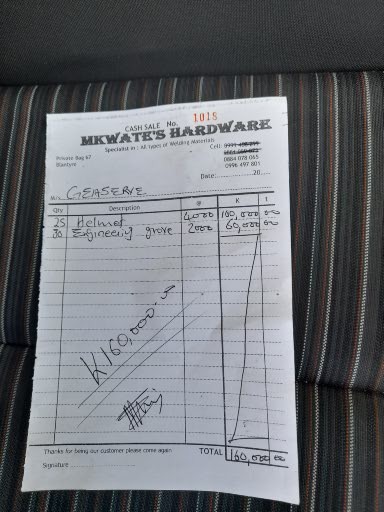 CASH SALE No. 1018
MKWATE'S HARDWARE
Specialist in : All types of Welding Materials
Private Bag 67
Blantyre
Cell:
0884 078 065
0996 497 801
Date: 20
M/s GEASERVE
Qty Description @ K t
25 Helmet 4000 100,000 00
30 Engineering grove 2000 60,000 00
K160,000.00
Thanks for being our customer please come again
TOTAL 160,000 00
Signature